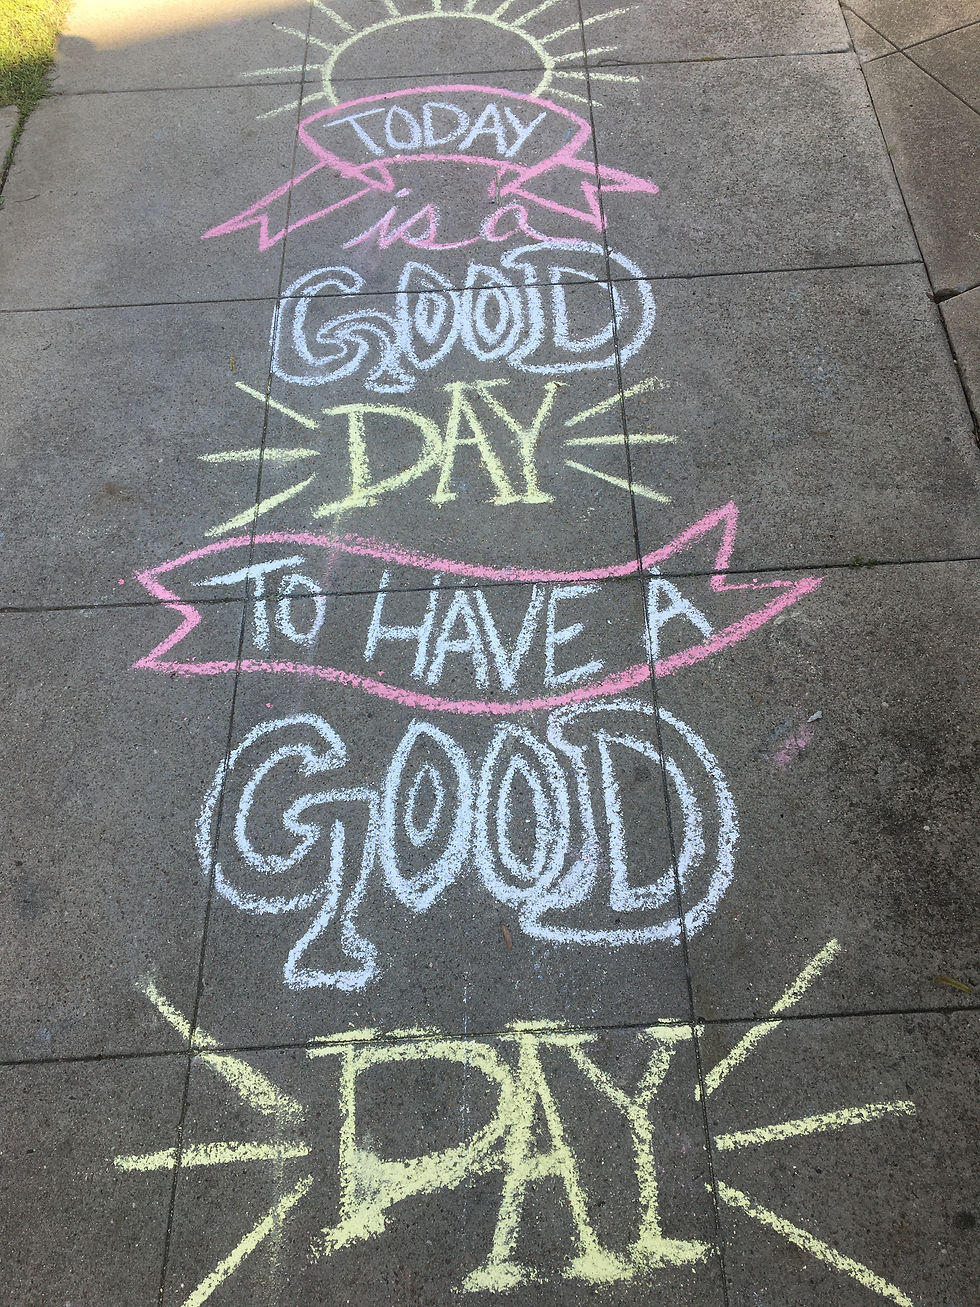 TODAY
is a
GOOD
DAY
TO HAVE A
GOOD
DAY